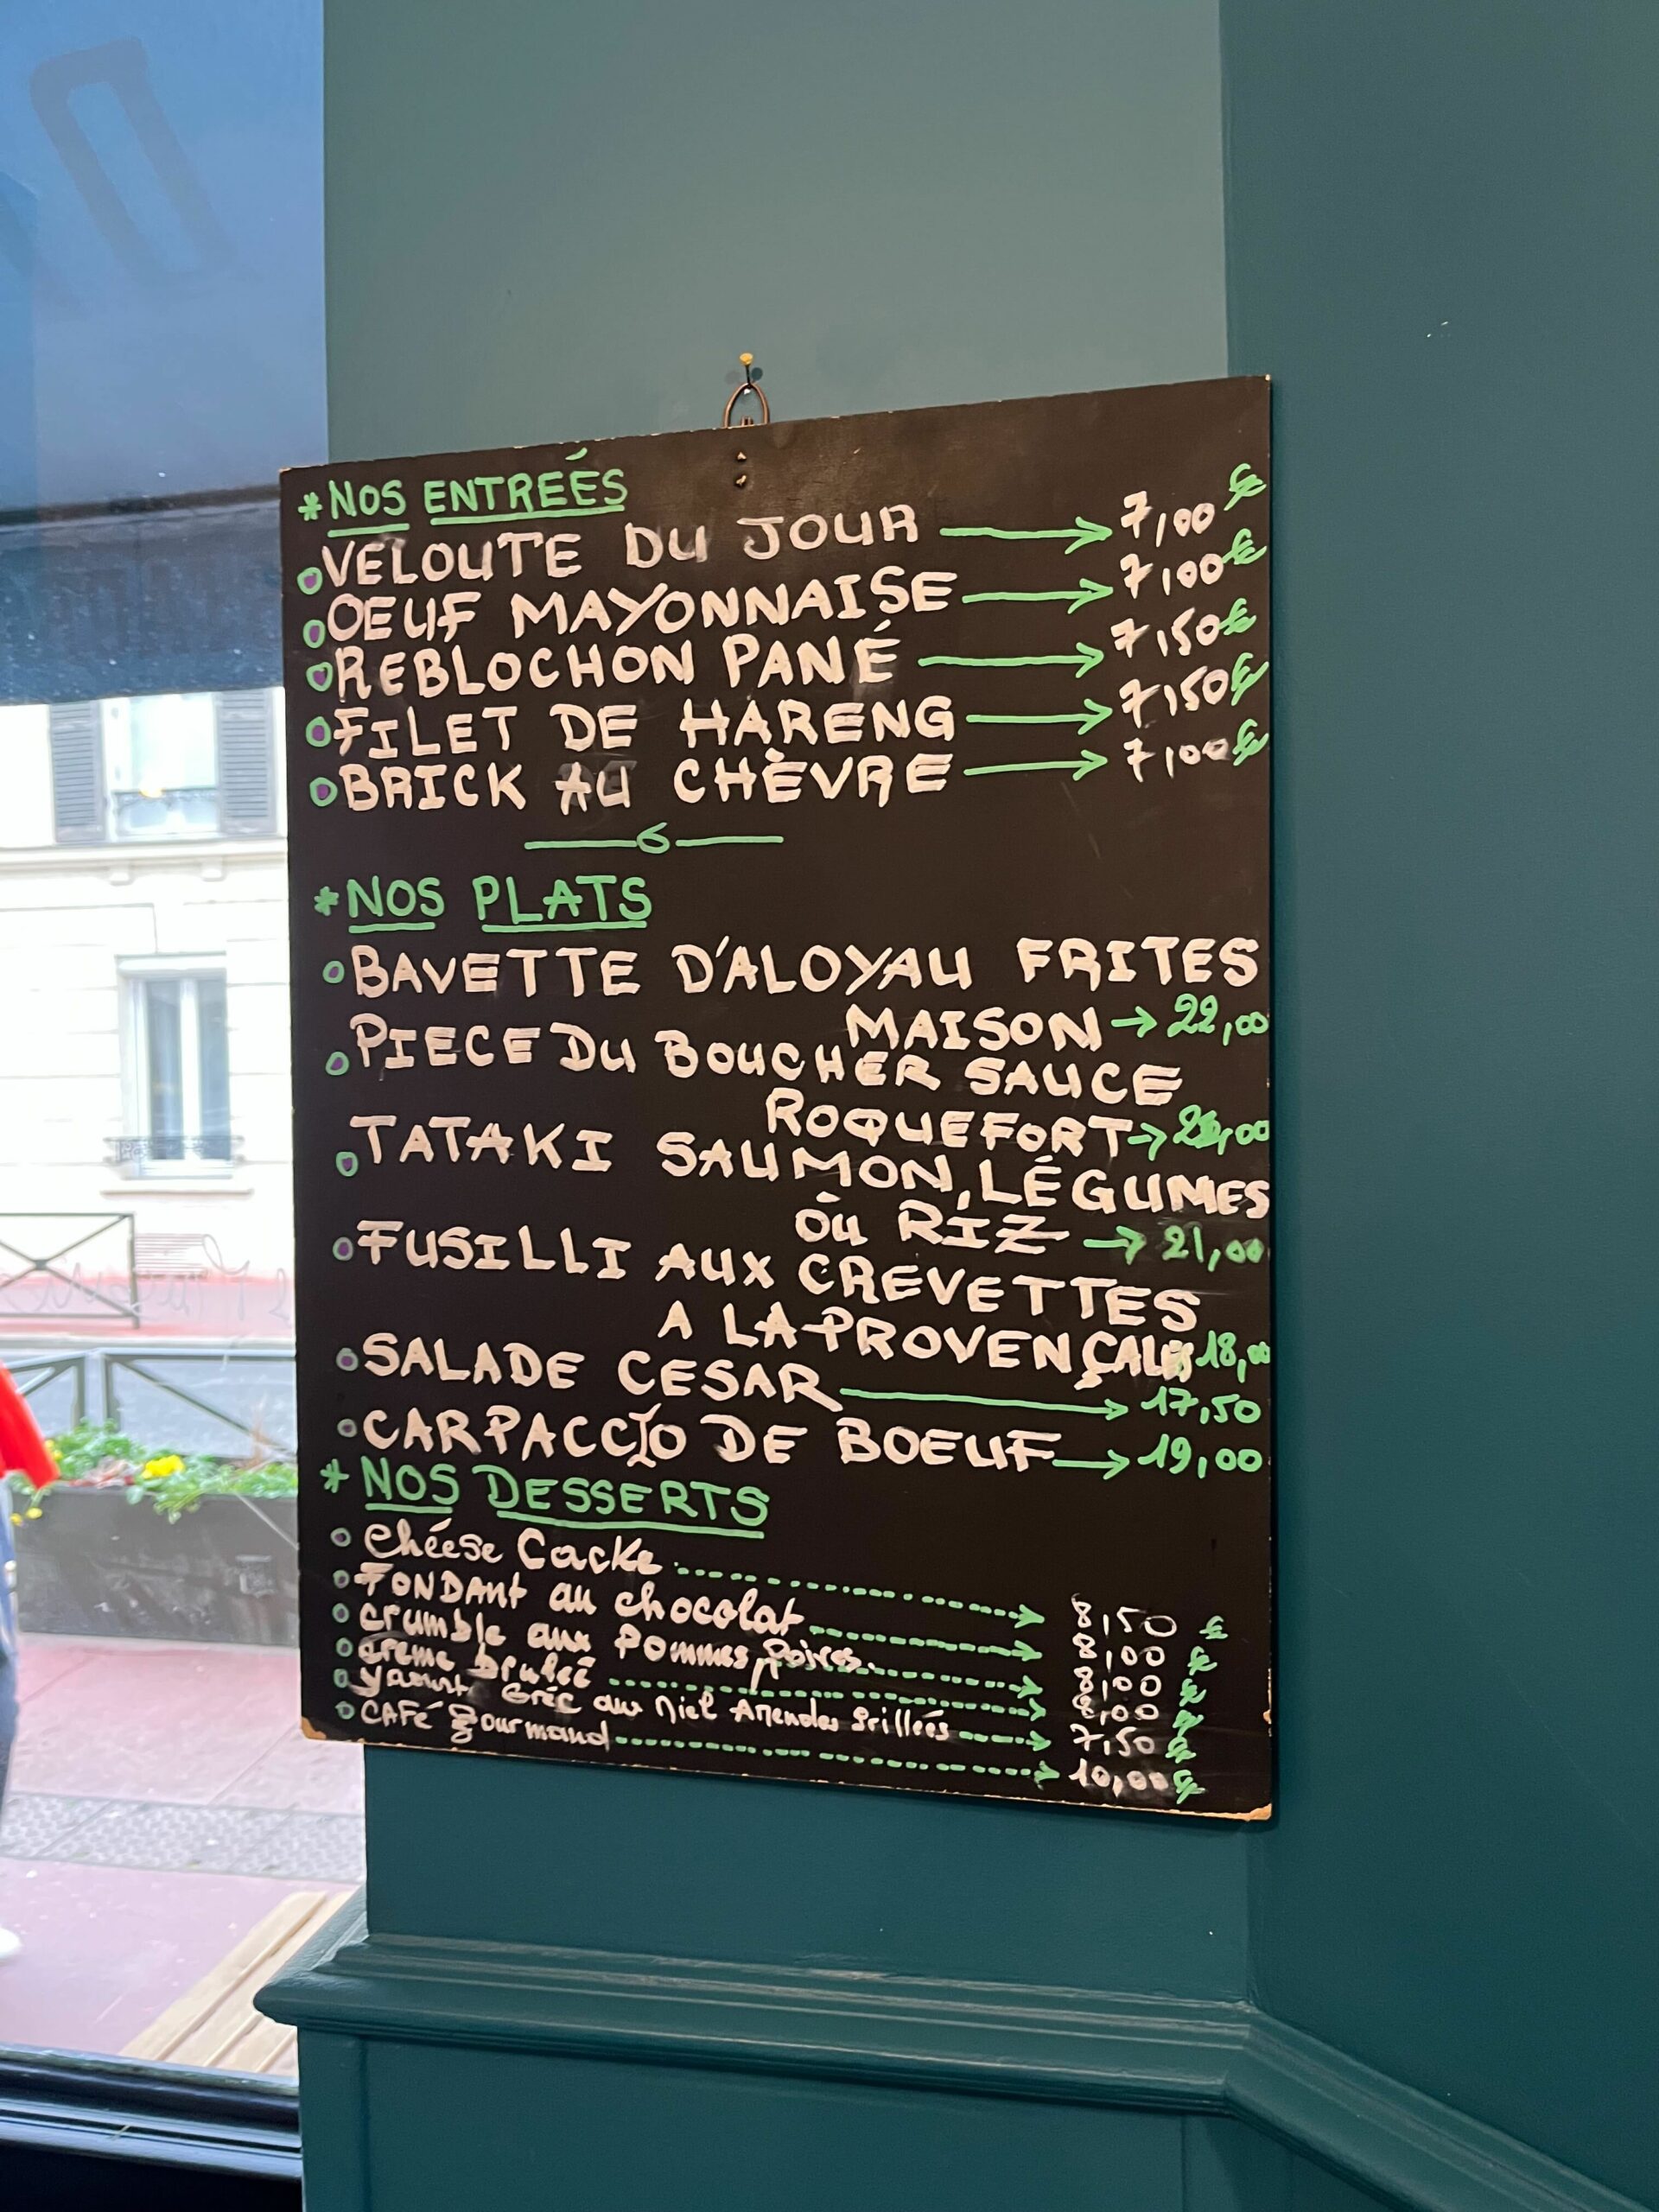 * NOS ENTREÉS
VELOUTE DU JOUR → 7,00 €
OEUF MAYONNAISE → 7,00 €
REBLOCHON PANÉ → 7,50 €
FILET DE HARENG → 7,50 €
BRICK AU CHÈVRE → 7,00 €
* NOS PLATS
BAVETTE D'ALOYAU FRITES
MAISON → 22,00
PIECE DU BOUCHER SAUCE
ROQUEFORT →
TATAKI SAUMON, LÉGUMES
OU RIZ → 21,00
FUSILLI AUX CREVETTES
A LA PROVENÇALE 18,00
SALADE CESAR → 17,50
CARPACCIO DE BOEUF → 19,00
* NOS DESSERTS
Chéése Cacke → 8,50 €
FONDANT au chocolat → 8,00 €
crumble aux Pommes, Poires → 8,00 €
creme bruleé → 8,00 €
yaourt Grèc au Miel Amendes Grilleés → 7,50 €
CAFé gourmand → 10,00 €